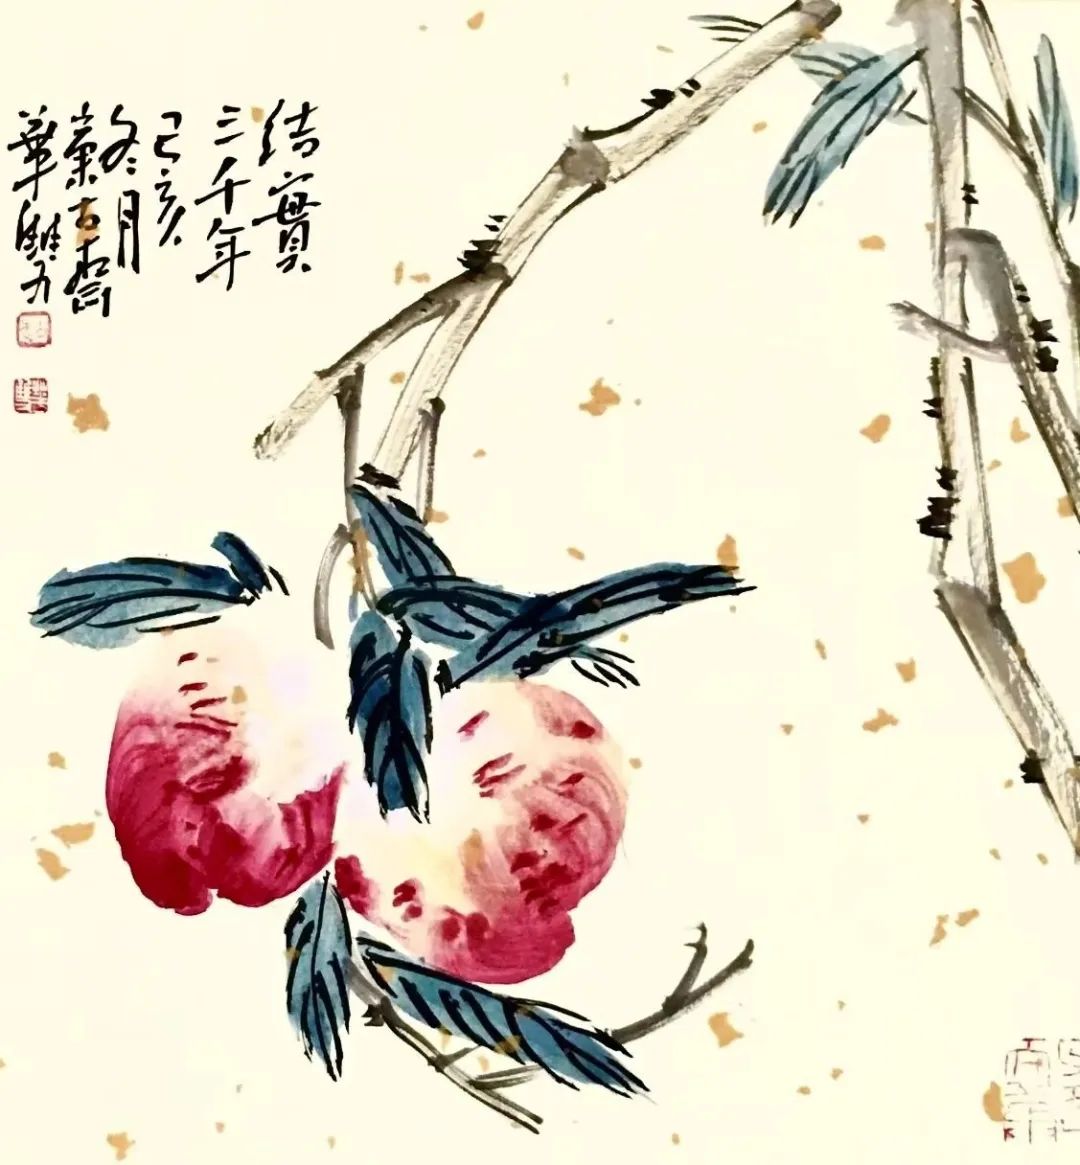 結實
三千年
己亥
冬月
古齋
華雙